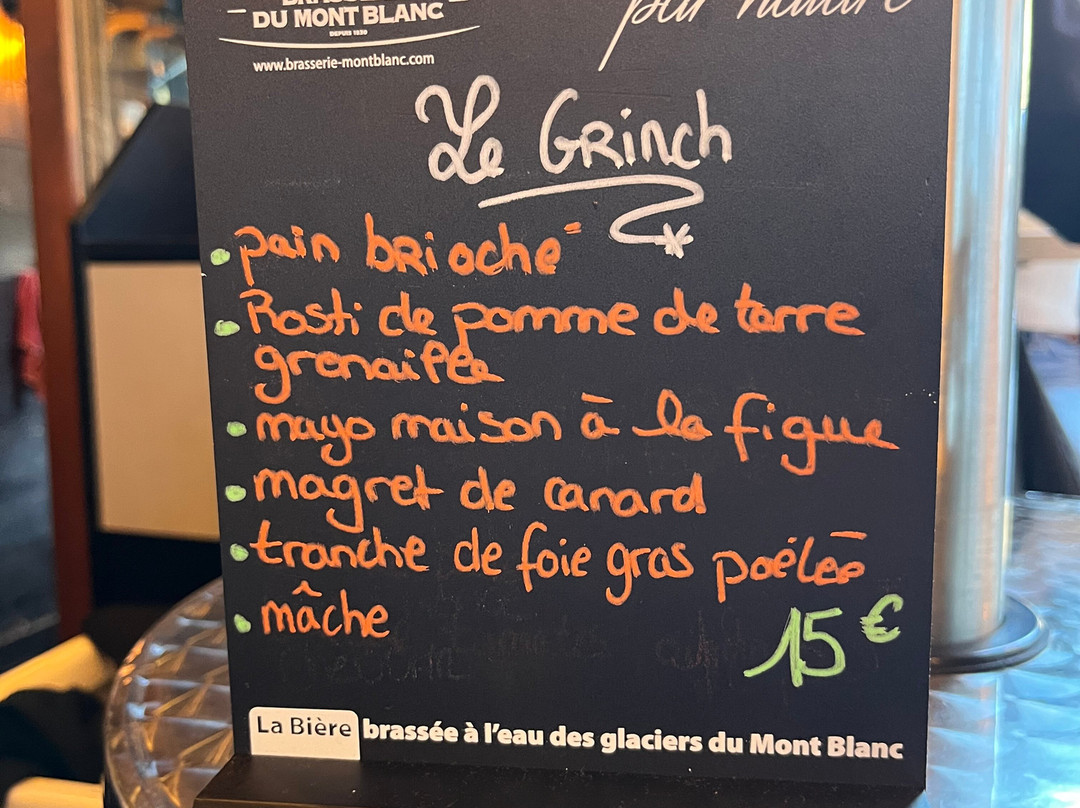 DU MONT BLANC
DEPUIS 1830
www.brasserie-montblanc.com
par nature
Le Grinch
pain brioché
Rosti de pomme de terre
grenaille
mayo maison à la figue
magret de canard
tranche de foie gras poêlée
mâche
15 €
La Bière brassée à l'eau des glaciers du Mont Blanc